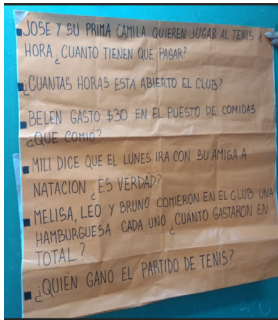 JOSE Y SU PRIMA CAMILA QUIEREN JUGAR AL TENIS 1
HORA ¿CUANTO TIENEN QUE PAGAR?
¿CUANTAS HORAS ESTA ABIERTO EL CLUB?
BELEN GASTO $30 EN EL PUESTO DE COMIDAS
¿QUE COMIO?
MILI DICE QUE EL LUNES IRA CON SU AMIGA A
NATACION ¿ES VERDAD?
MELISA, LEO Y BRUNO COMIERON EN EL CLUB UNA
HAMBURGUESA CADA UNO ¿CUANTO GASTARON EN
TOTAL?
¿QUIEN GANO EL PARTIDO DE TENIS?